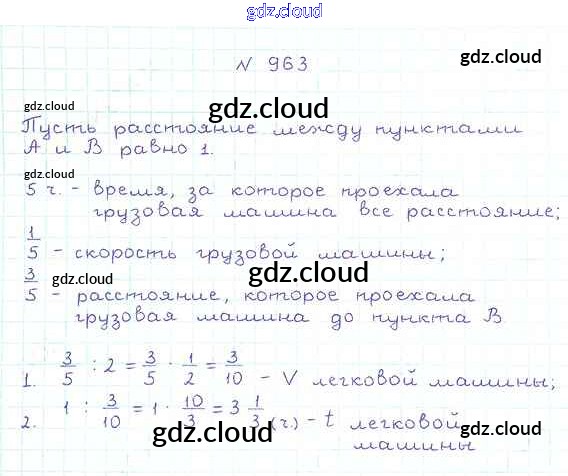 gdz.cloud
N 963
gdz.cloud
gdz.cloud
gdz.cloud
Пусть расстояние между пунктами
А и В равно 1.
gdz.cloud
gdz.cloud
5 ч. - время, за которое проехала
грузовая машина все расстояние;
1/5 - скорость грузовой машины;
gdz.cloud
gdz.cloud
3/5 - расстояние, которое проехала
грузовая машина до пункта В
gdz.cloud
1. 3/5 : 2 = 3/5 · 1/2 = 3/10 - V легковой машины;
2. 1 : 3/10 = 1 · 10/3 = 3 1/3 (ч.) - t легковой
машины
gdz.cloud
gdz.cloud